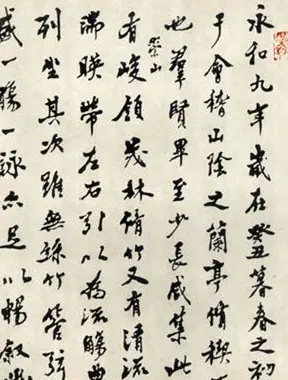 永和九年歲在癸丑暮春之初
于會稽山陰之蘭亭脩稧
也羣賢畢至少長咸集此
有崇山峻領茂林脩竹又有清流
湍暎帶左右引以為流觴曲
列坐其次雖無絲竹管弦
盛一觴一詠亦足以暢叙